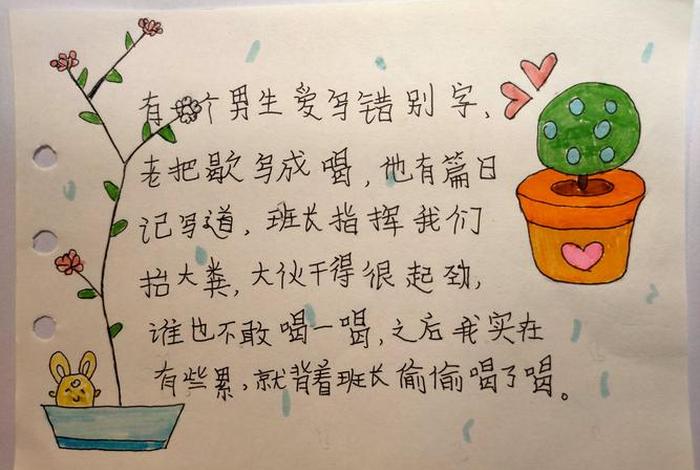 有一个男生爱写错别字，
老把歇写成喝，他有篇日
记写道，班长指挥我们
抬大粪，大伙干得很起劲，
谁也不敢喝一喝，之后我实在
有些累，就背着班长偷偷喝了喝。